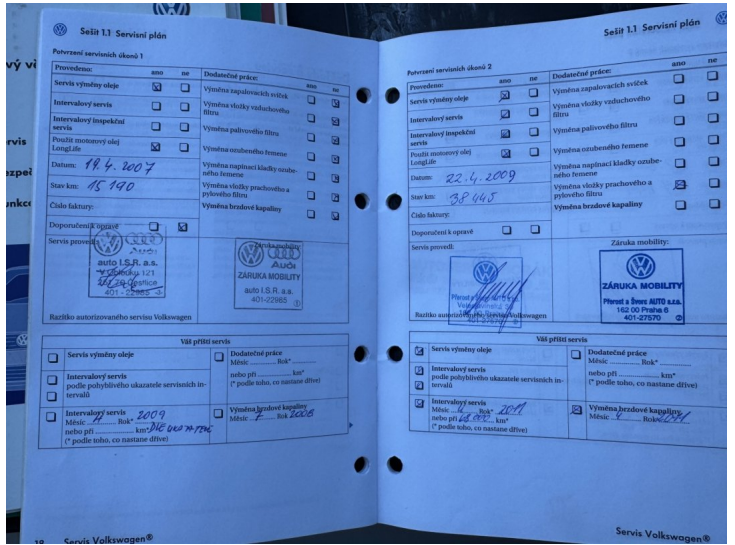 Sešit 1.1 Servisní plán
Potvrzení servisních úkonů 1
Provedeno: ano ne
Servis výměny oleje
Intervalový servis
Intervalový inspekční
servis
Použit motorový olej
LongLife
Datum: 19.4.2007
Stav km: 15 190
Číslo faktury:
Doporučení k opravě
Servis provedl:
Audi
auto I.S.R. a.s.
401-22985
Razítko autorizovaného servisu Volkswagen
Dodatečné práce: ano ne
Výměna zapalovacích svíček
Výměna vložky vzduchového
filtru
Výměna palivového filtru
Výměna ozubeného řemene
Výměna napínací kladky ozube-
ného řemene
Výměna vložky prachového a
pylového filtru
Výměna brzdové kapaliny
Záruka mobility:
Audi
ZÁRUKA MOBILITY
auto I.S.R. a.s.
401-22985
Váš příští servis
Servis výměny oleje
Intervalový servis
podle pohyblivého ukazatele servisních in-
tervalů
Intervalový servis
Měsíc Rok* 2009
nebo při km*
(* podle toho, co nastane dříve)
Dodatečné práce
Měsíc Rok*
nebo při km*
(* podle toho, co nastane dříve)
Výměna brzdové kapaliny
Měsíc Rok 2008
Servis Volkswagen®
Sešit 1.1 Servisní plán
Potvrzení servisních úkonů 2
Provedeno: ano ne
Servis výměny oleje
Intervalový servis
Intervalový inspekční
servis
Použit motorový olej
LongLife
Datum: 22.4.2009
Stav km: 38 445
Číslo faktury:
Doporučení k opravě
Servis provedl:
Razítko autorizovaného servisu Volkswagen
Dodatečné práce: ano ne
Výměna zapalovacích svíček
Výměna vložky vzduchového
filtru
Výměna palivového filtru
Výměna ozubeného řemene
Výměna napínací kladky ozube-
ného řemene
Výměna vložky prachového a
pylového filtru
Výměna brzdové kapaliny
Záruka mobility:
ZÁRUKA MOBILITY
Přerost a Švorc AUTO s.r.o.
162 00 Praha 6
401-27570
Váš příští servis
Servis výměny oleje
Intervalový servis
podle pohyblivého ukazatele servisních in-
tervalů
Intervalový servis
Měsíc 4 Rok* 2011
nebo při km*
(* podle toho, co nastane dříve)
Dodatečné práce
Měsíc Rok*
nebo při km*
(* podle toho, co nastane dříve)
Výměna brzdové kapaliny
Měsíc 4 Rok 2011
Servis Volkswagen®